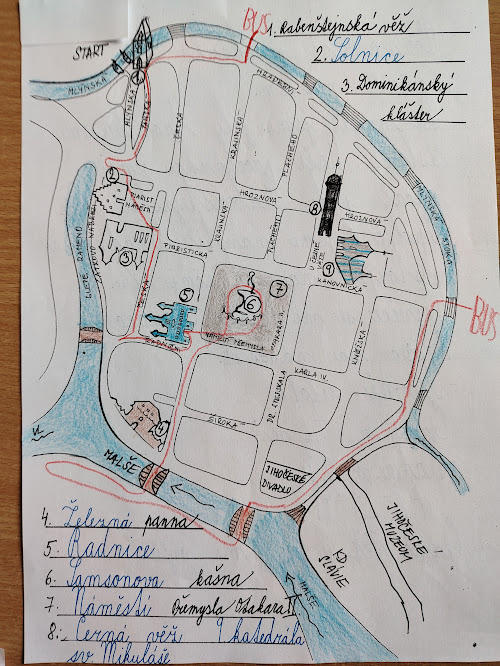 BUS
START
1. Rabenštejnská věž
2. Solnice
3. Dominikánský
klášter
MLÝNSKÁ
1
HRADEBNÍ
ČESKÁ
KRAJINSKÁ
PLACHÉHO
MLÝNSKÁ
STOKA
2
PIARIST.
NÁMĚSTÍ
HROZNOVÁ
8
HROZNOVÁ
KRAJINSKÁ
PLACHÉHO
U ČERNÉ
VĚŽE
9
3
PIARISTICKÁ
KANOVNICKÁ
SLEPÉ RAMENO
ČESKÁ
5
6
7
BUS
RADNIČNÍ
NÁMĚSTÍ PŘEMYSLA
OTAKARA II.
KNĚŽSKÁ
KARLA IV.
DR. STEJSKALA
4
ŠIROKÁ
MALŠE
JIHOČESKÉ
DIVADLO
JIHOČESKÉ
MUZEUM
KD
SLAVIE
MALŠE
4. Železná panna
5. Radnice
6. Samsonova kašna
7. Náměstí Přemysla Otakara II
8. Černá věž 9 katedrála
sv. Mikuláše